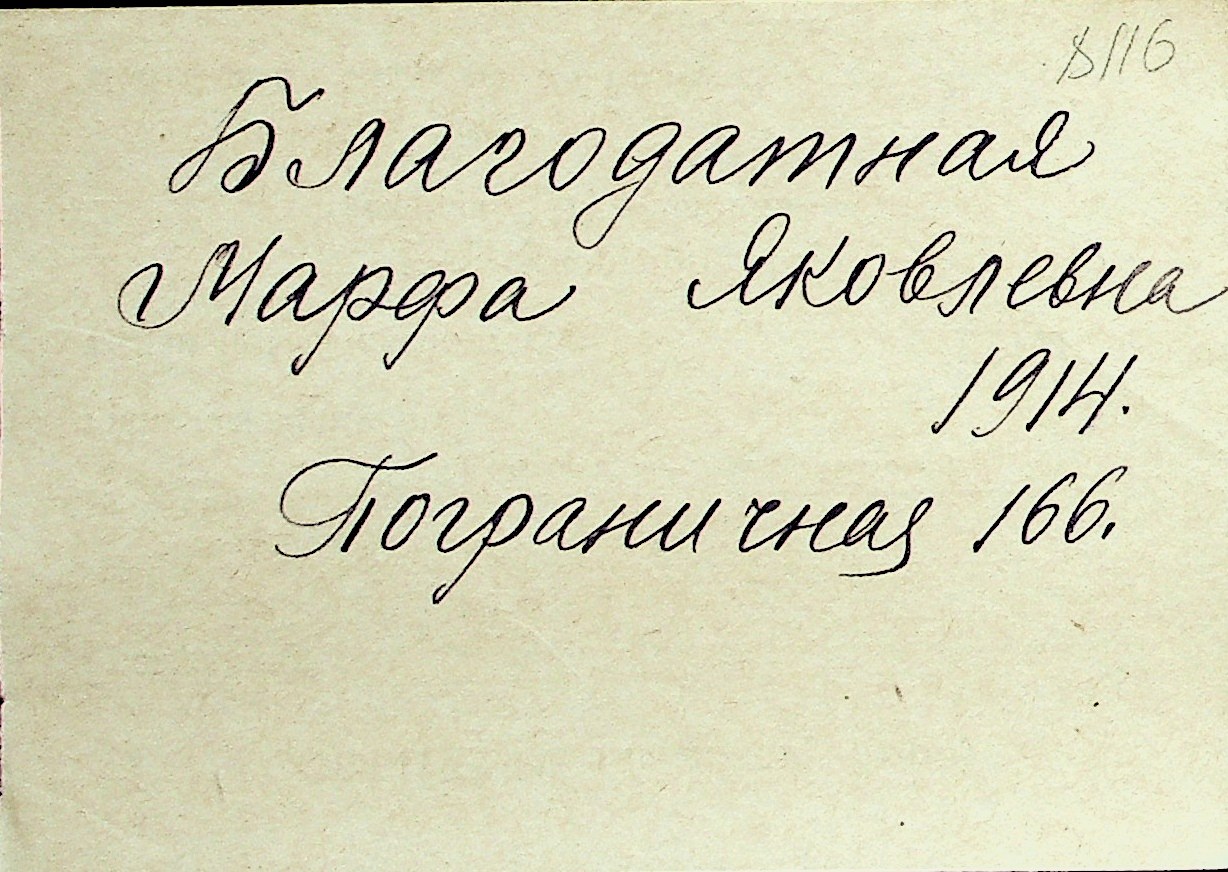 8116
Благодатная
Марфа Яковлевна
1914.
Пограничная 166.